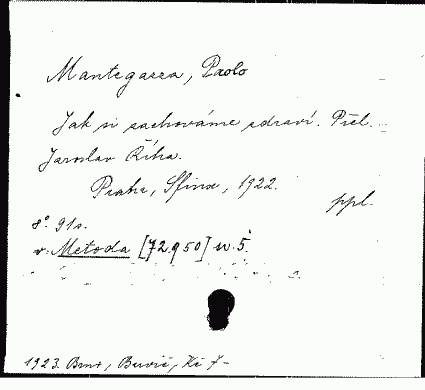 Mantegazza, Paolo
Jak si zachováme zdraví. Přel.
Jaroslav Říha.
Praha, Sfinx, 1922.
ppl.
8° 91 s.
v: Metoda [72.950] sv. 5.
1923. Brno, Barvič, Kč 7-